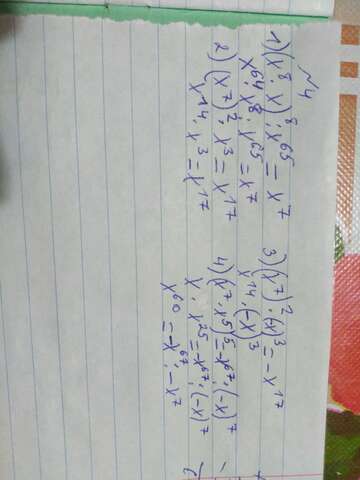 №4
1) (x⁸ · x)⁸ · x⁶⁵ = x⁷
x⁶⁴ · x⁸ · x⁶⁵ = x⁷
2) (x⁷)² · x³ = x¹⁷
x¹⁴ · x³ = x¹⁷
3) (x⁷)² · (-x)³ = -x¹⁷
x¹⁴ · (-x)³
4) (x⁷ · x⁵)⁵ = -x⁶⁷ · (-x)⁷
x · x²⁵ = -x⁶⁷ · (-x)⁷
x⁶⁰ = -x⁶⁷ · -x⁷